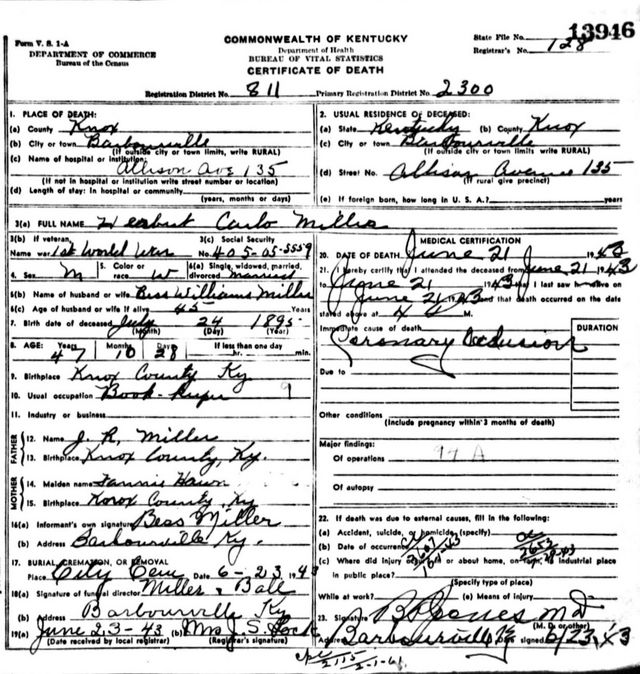 Form V. S. 1-A
DEPARTMENT OF COMMERCE
Bureau of the Census
COMMONWEALTH OF KENTUCKY
Department of Health
BUREAU OF VITAL STATISTICS
CERTIFICATE OF DEATH
State File No. 13946
Registrar's No. 128
Registration District No. 811 Primary Registration District No. 2300
1. PLACE OF DEATH:
(a) County Knox
(b) City or town Barbourville
(If outside city or town limits, write RURAL)
(c) Name of hospital or institution:
Allison Ave 135
(If not in hospital or institution write street number or location)
(d) Length of stay: In hospital or community
(years, months or days)
2. USUAL RESIDENCE OF DECEASED:
(a) State Kentucky (b) County Knox
(c) City or town Barbourville
(If outside city or town limits, write RURAL)
(d) Street No. Allison Avenue 135
(If rural give precinct)
(e) If foreign born, how long in U. S. A.? years
3(a) FULL NAME Herbert Carlo Miller
3(b) If veteran,
Name war 1st World War
3(c) Social Security
No. 405-05-5559
4. Sex M
5. Color or
race W
6(a) Single, widowed, married,
divorced Married
6(b) Name of husband or wife Bess Williams Miller
6(c) Age of husband or wife if alive 45
7. Birth date of deceased July 24 1895
(Month) (Day) (Year)
8. AGE: Years Months Days If less than one day
47 10 28 hr. min.
9. Birthplace Knox County Ky.
10. Usual occupation Book-Keeper 9
11. Industry or business
FATHER
12. Name J. R. Miller
13. Birthplace Knox County, Ky.
MOTHER
14. Maiden name Fannie
15. Birthplace Knox County, Ky
16(a) Informant's own signature Bess Miller
(b) Address Barbourville Ky.
17. BURIAL, CREMATION, OR REMOVAL
Place City Cem Date 6-23 1943
18(a) Signature of funeral director Miller & Ball
(b) Address Barbourville Ky
19(a) June 23-43 (b) Mrs J. S. Lock
(Date received by local registrar) (Registrar's signature)
MEDICAL CERTIFICATION
20. DATE OF DEATH June 21 1943
21. I hereby certify that I attended the deceased from June 21 1943
to June 21 1943 that I last saw h alive on
June 21 1943 and that death occurred on the date
stated above at 4 M.
Immediate cause of death
Coronary Occlusion
DURATION
Due to
Other conditions
(Include pregnancy within 3 months of death)
Major findings:
Of operations
Of autopsy
22. If death was due to external causes, fill in the following:
(a) Accident, suicide, or homicide (specify)
(b) Date of occurrence
(c) Where did injury or about home, on farm, in industrial place
in public place?
(Specify type of place)
While at work? (e) Means of injury
23. Signature B P Jones MD
(M. D. or other)
Address Barbourville Ky signed 6/23/43